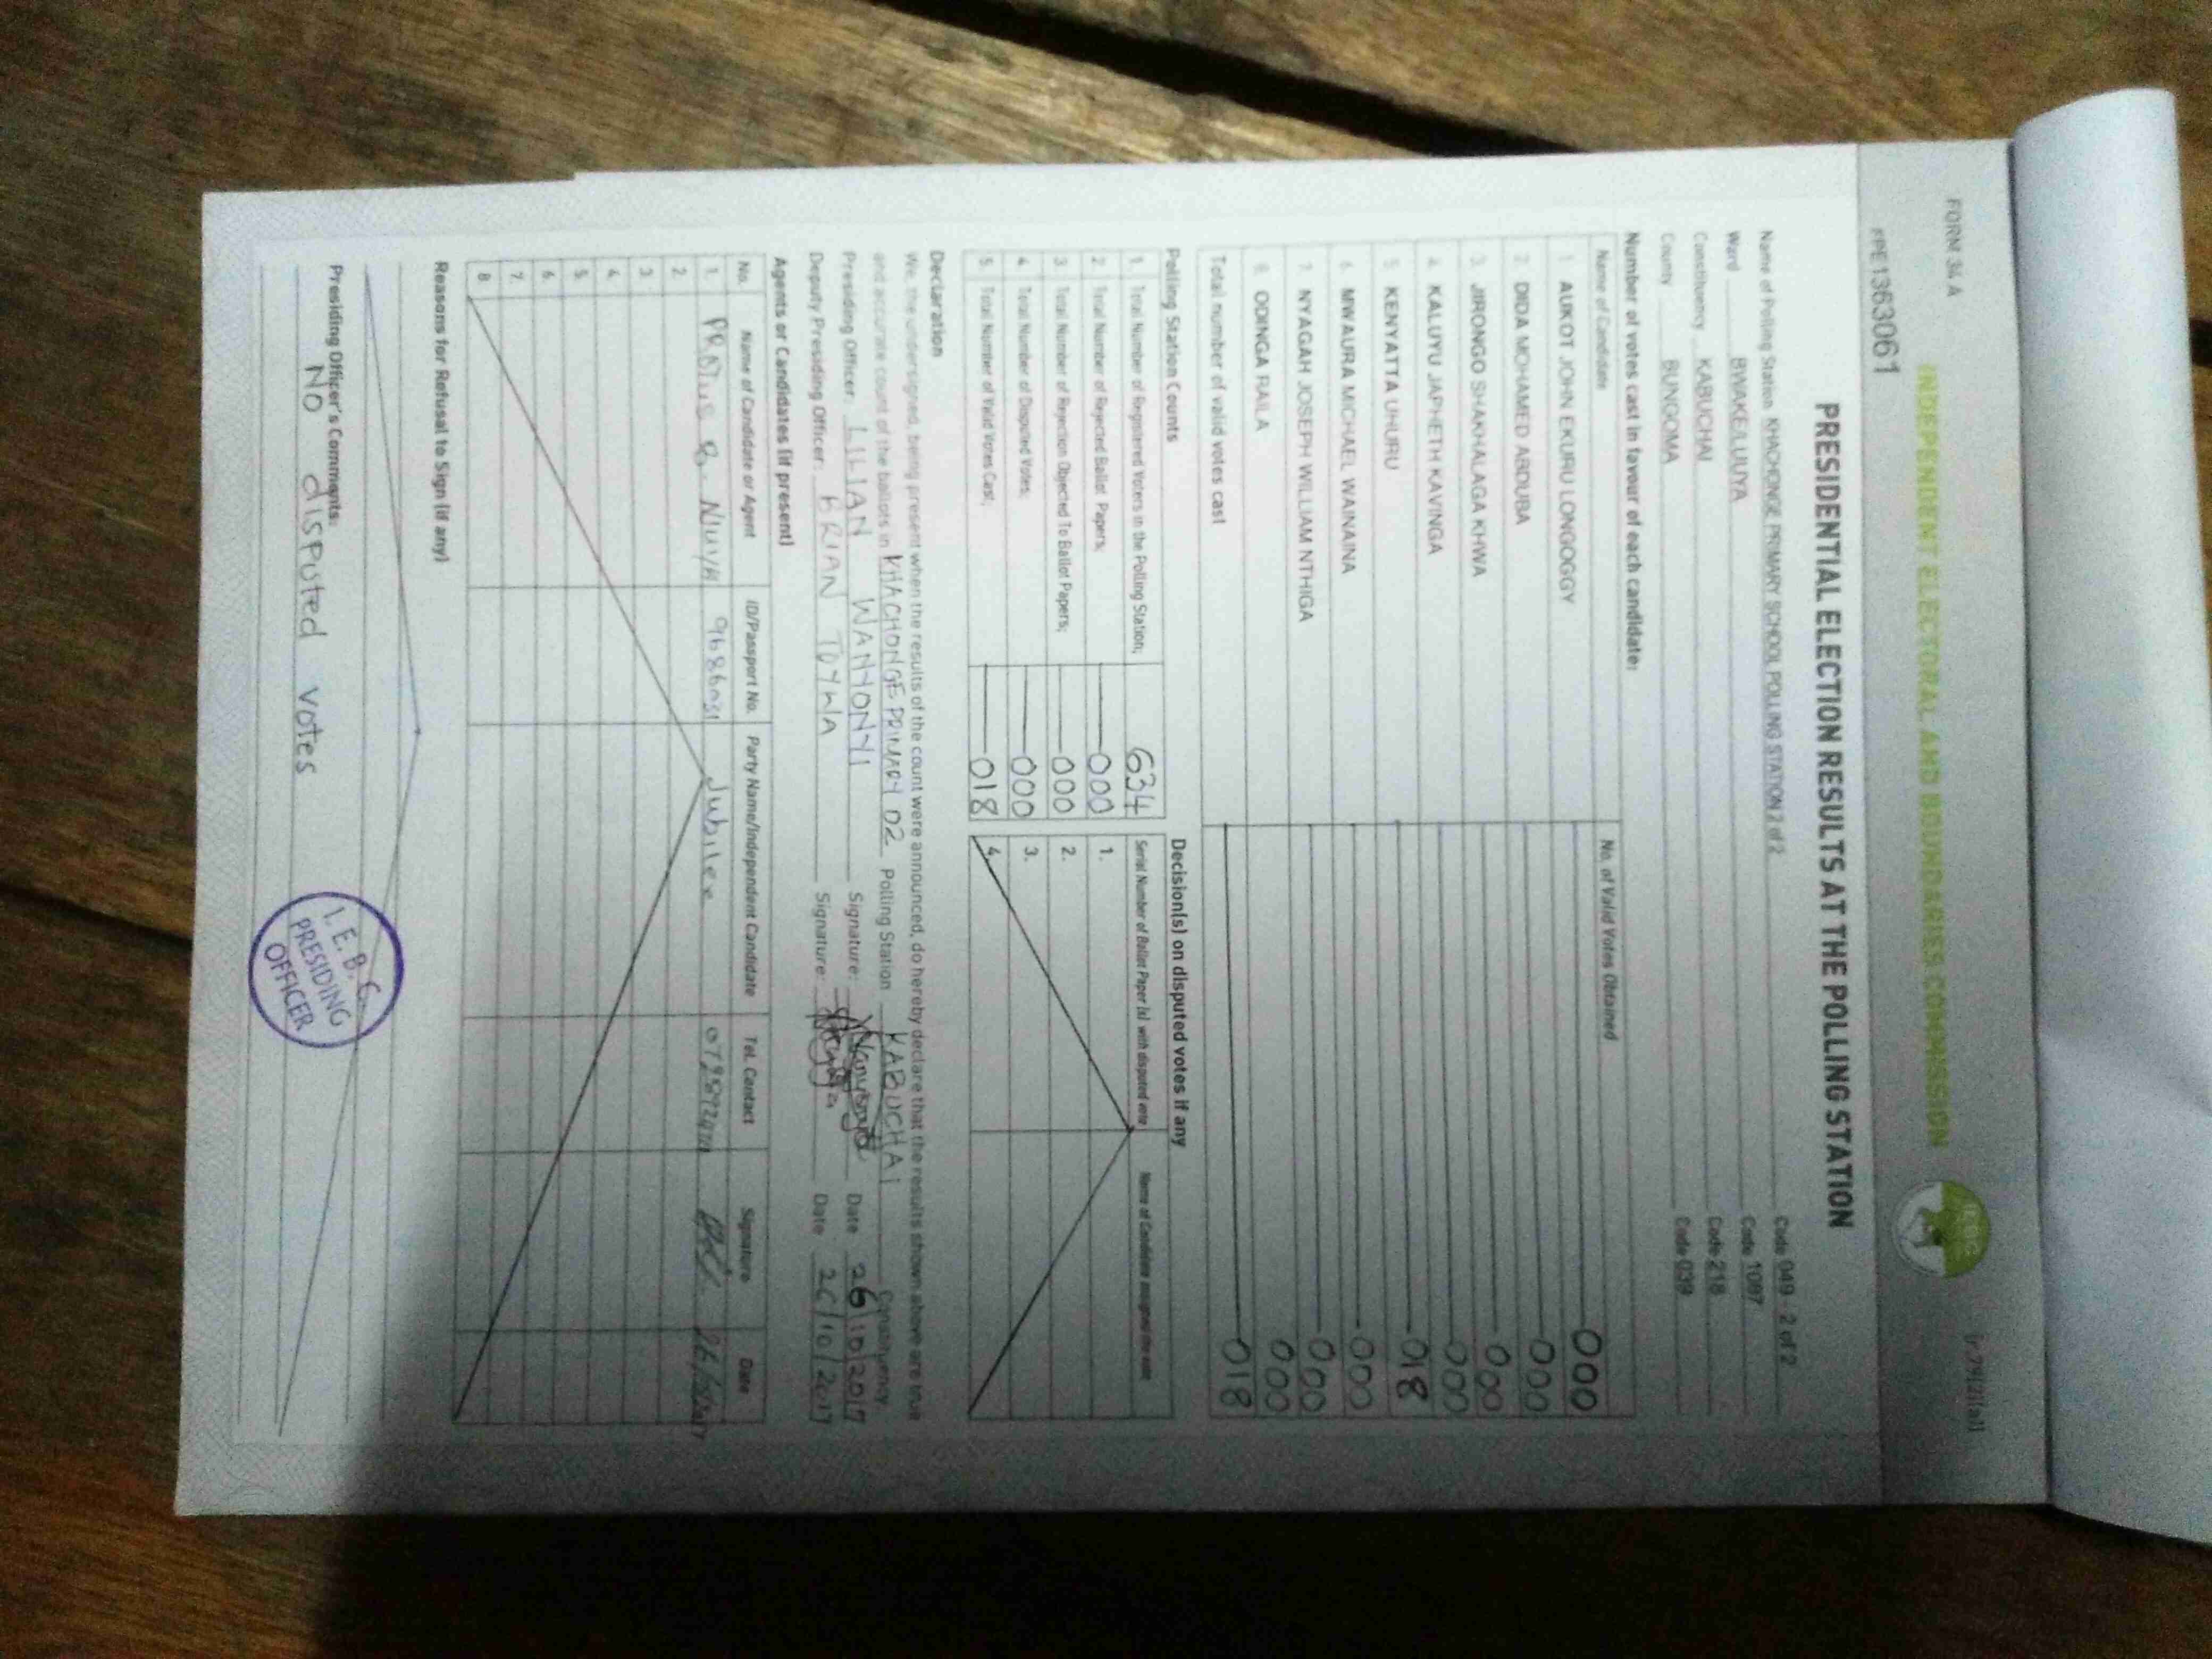 FORM 34 A
INDEPENDENT ELECTORAL AND BOUNDARIES COMMISSION
(r.79(2)(a))
PPE1363061
PRESIDENTIAL ELECTION RESULTS AT THE POLLING STATION
Name of Polling Station KHACHONGE PRIMARY SCHOOL POLLING STATION 2 of 2 Code 049 - 2 of 2
Ward BWAKE/LUUYA Code 1087
Constituency KABUCHAI Code 218
County BUNGOMA Code 039
Number of votes cast in favour of each candidate:
Name of Candidate No. of Valid Votes Obtained
1. AUKOT JOHN EKURU LONGOGGY 000
2. DIDA MOHAMED ABDUBA 000
3. JIRONGO SHAKHALAGA KHWA 000
4. KALUYU JAPHETH KAVINGA 000
5. KENYATTA UHURU 018
6. MWAURA MICHAEL WAINAINA 000
7. NYAGAH JOSEPH WILLIAM NTHIGA 000
8. ODINGA RAILA 000
Total number of valid votes cast 018
Polling Station Counts
1. Total Number of Registered Voters in the Polling Station; 634
2. Total Number of Rejected Ballot Papers; 000
3. Total Number of Rejection Objected To Ballot Papers; 000
4. Total Number of Disputed Votes; 000
5. Total Number of Valid Votes Cast; 018
Decision(s) on disputed votes if any
Serial Number of Ballot Paper (s) with disputed vote Name of Candidate assigned the vote
1.
2.
3.
4.
Declaration
We, the undersigned, being present when the results of the count were announced, do hereby declare that the results shown above are true
and accurate count of the ballots in KHACHONGE PRIMARY 02 Polling Station KABUCHAI Constituency
Presiding Officer: LILIAN WANYONYI Signature: Date 26/10/2017
Deputy Presiding Officer: BRIAN Signature: Date 26/10/2017
Agents or Candidates (if present)
No. Name of Candidate or Agent ID/Passport No. Party Name/Independent Candidate Tel. Contact Signature Date
1. Jubilee
2.
3
4
5.
6
7.
8
Reasons for Refusal to Sign (if any)
Presiding Officer's Comments:
No disputed votes
I. E. B. C
PRESIDING
OFFICER